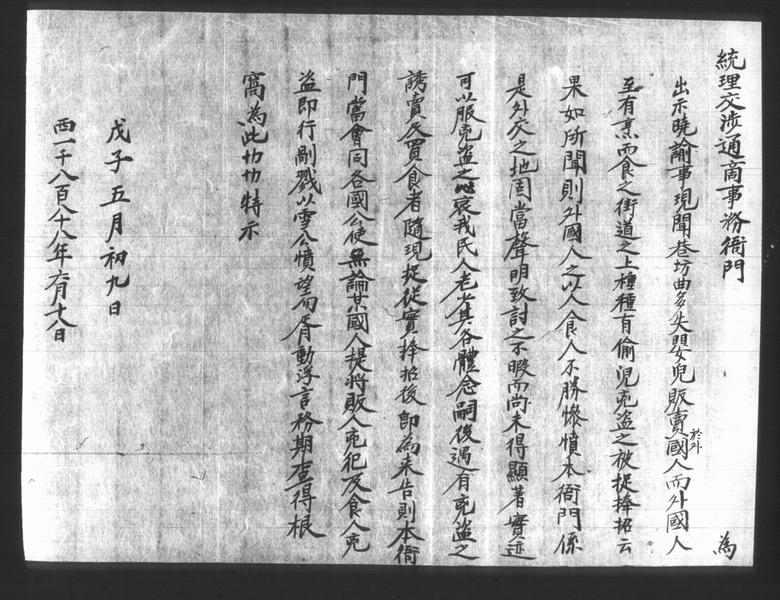 統理交涉通商事務衙門　為
出示曉諭事現聞巷坊曲多失嬰兒販賣於外國人而外國人
至有烹而食之街道之上種種有偷兒兇盜之被捉捧招云
果如所聞則外國人之以人食人不勝慘憤本衙門係
是外交之地固當聲明致討之不暇而尚未得顯著實迹
可以服兇盜之心哀我民人老少其各體念嗣後遇有兇盜之
誘賣及買食者隨現捉從實捧招後即為來告則本衙
門當會同各國公使無論某國人提將販人兇犯及食人兇
盜即行剮戮以雪公憤望勿胥動浮言務期查得根
窩為此切切特示
戊子五月初九日
西一千八百八十八年六月十八日